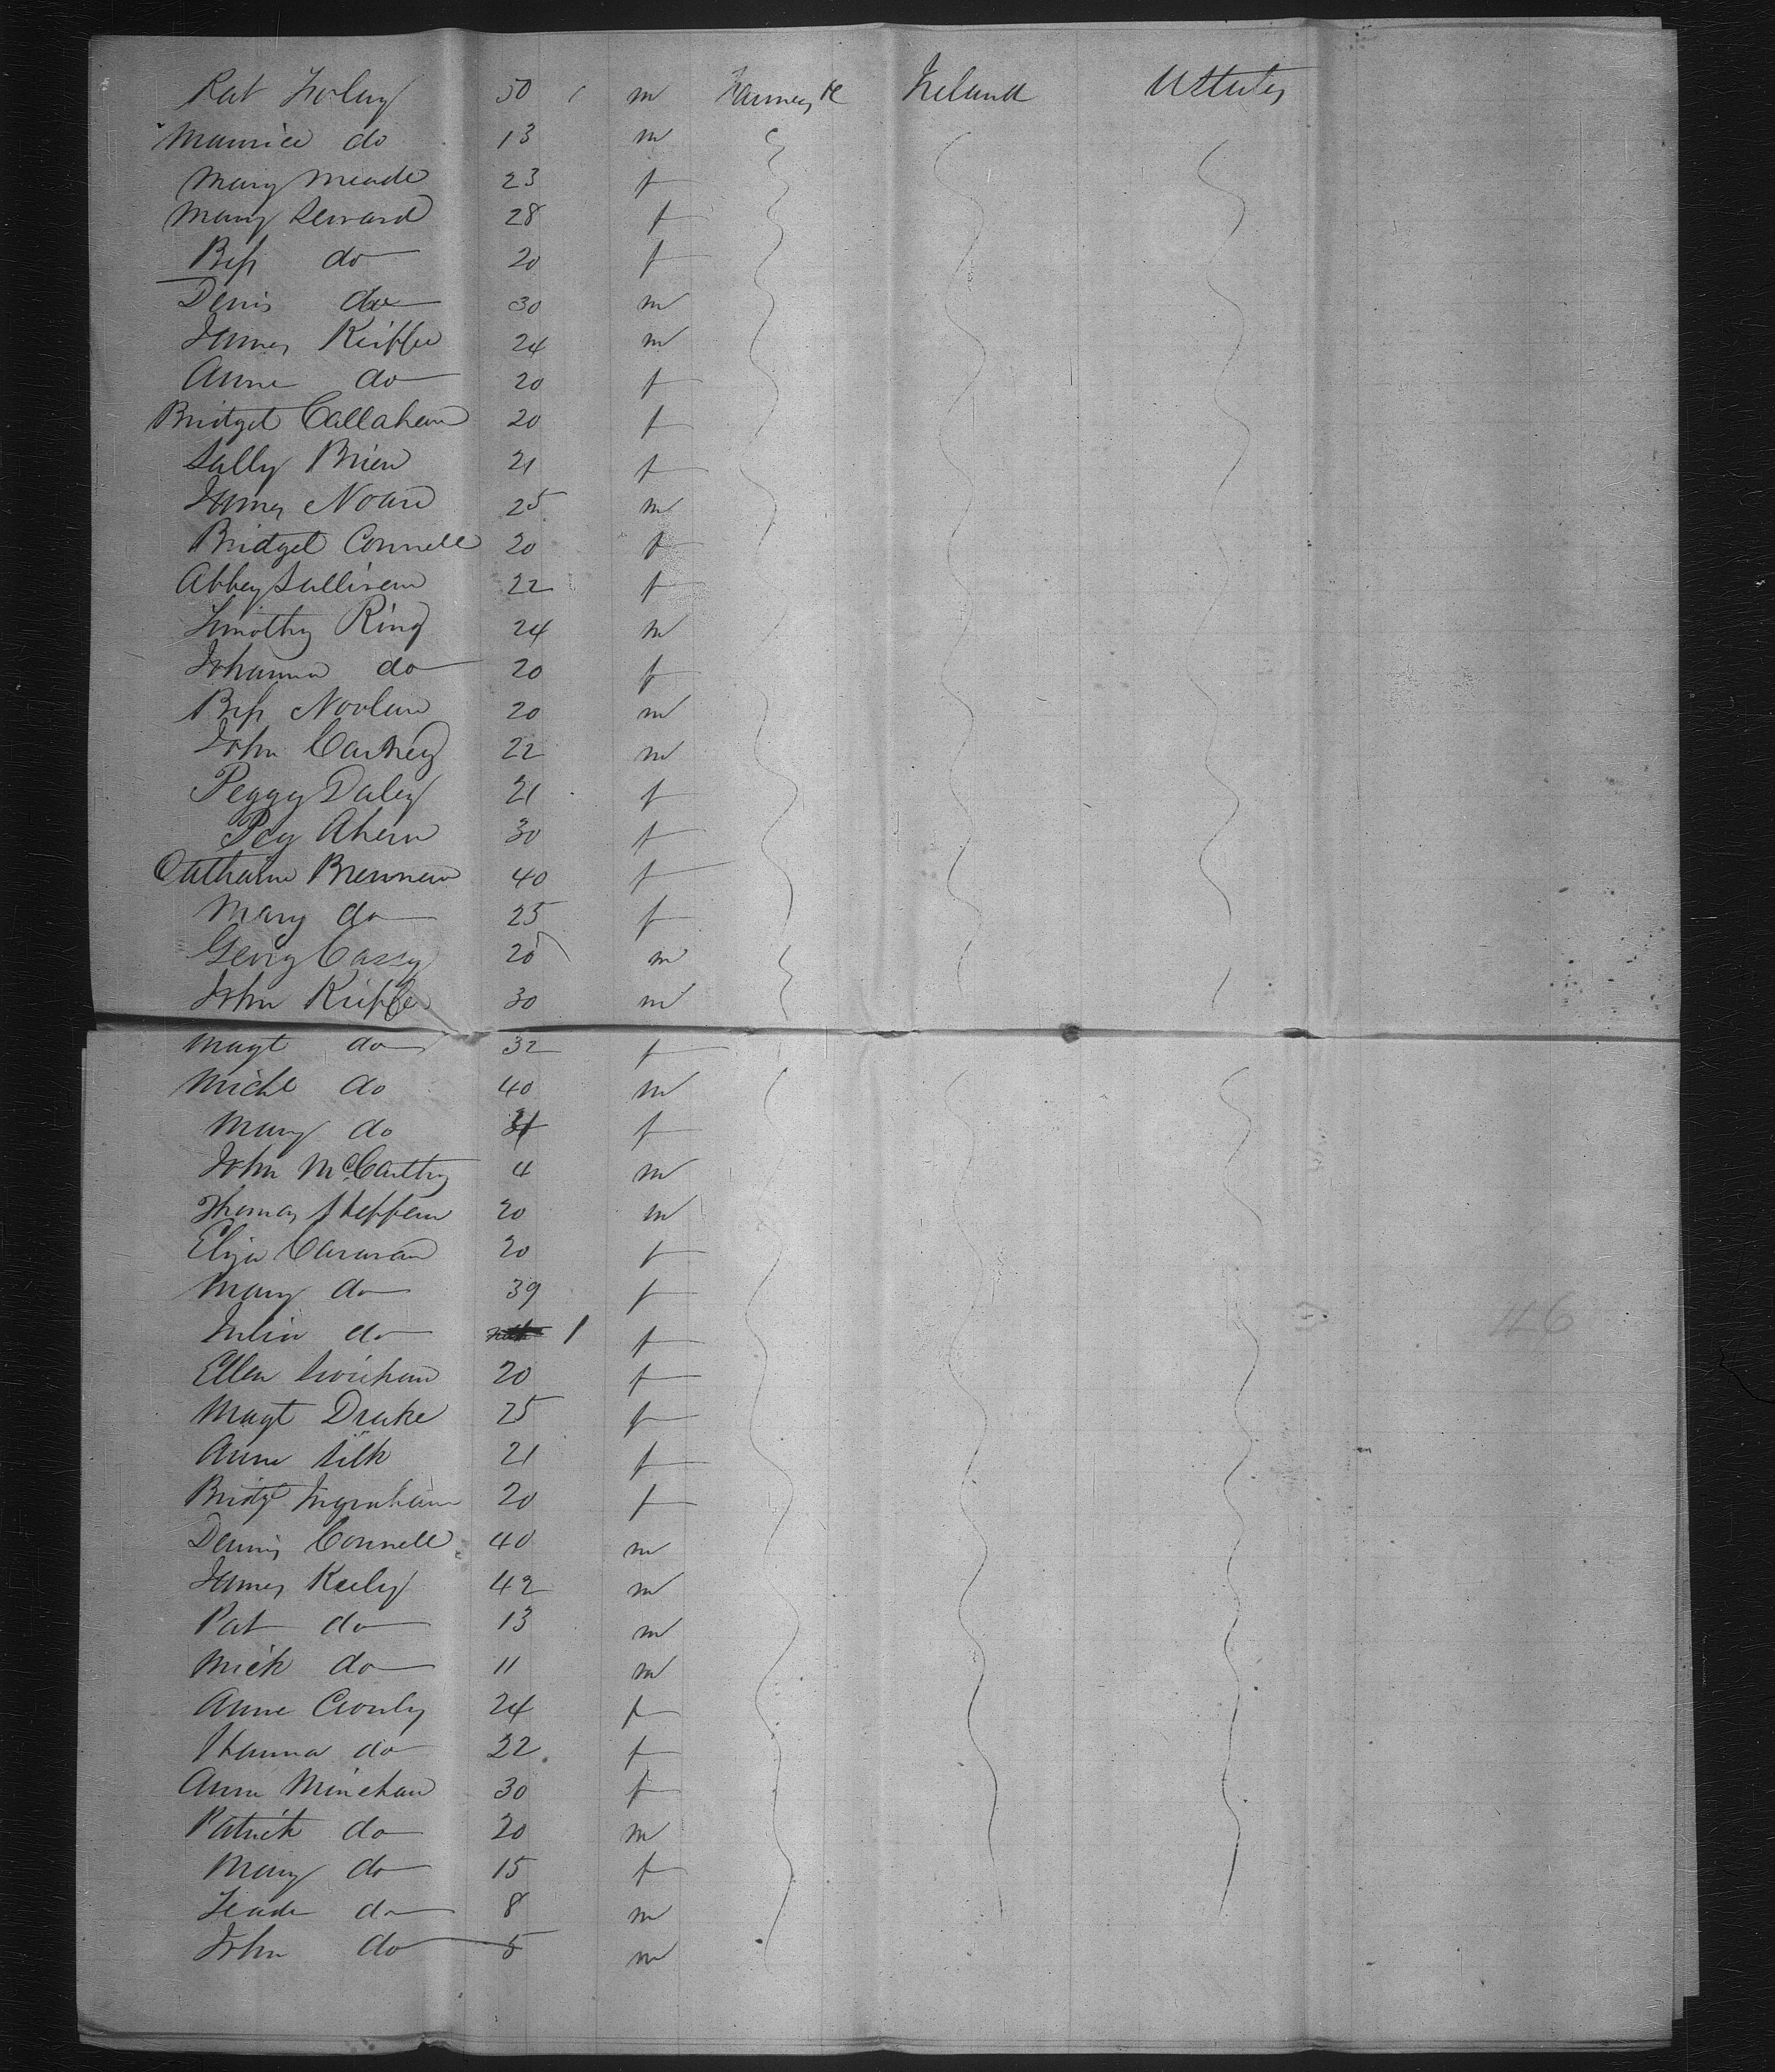 Pat Foley 50 m Farmers &c Ireland UStates
Maurice do 13 m
Mary Meade 23 f
Mary Seward 28 f
Bess do 20 f
Denis do 30 m
James Kieffe 24 m
Anne do 20 f
Bridget Callahan 20 f
Sally Brien 21 f
James Noan 25 m
Bridget Connell 20 f
Abbey Sullivan 22 f
Timothy Ring 24 m
Johanna do 20 f
Bess Noolan 20 m
John Carney 22 m
Peggy Daley 21 f
Peg Ahern 30 f
Catharine Brennan 40 f
Mary do 25 f
Georg Cassy 20 m
John Kieffe 30 m
Magt do 32 f
Michl do 40 m
Mary do f
John McCarthy 4 m
Thomas Heffern 20 m
Eliza Caravan 20 f
Mary do 39 f
Julia do 1 f
Ellen 20 f
Magt Drake 25 f
Anne Silk 21 f
Bridgt Ingraham 20 f
Dennis Connell 40 m
James Keely 42 m
Pat do 13 m
Mick do 11 m
Anne Cronly 24 f
Hanna do 22 f
Anne Minehan 30 f
Patrick do 20 m
Mary do 15 f
do 8 m
John do 5 m
46